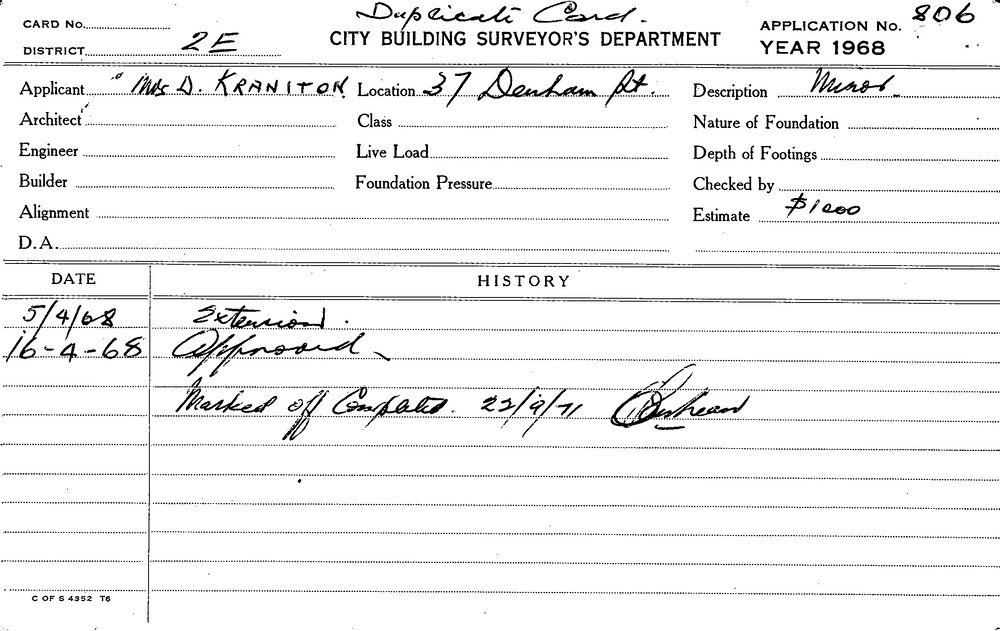 Duplicate Card.
CARD No.
APPLICATION No. 806
DISTRICT 2E
CITY BUILDING SURVEYOR'S DEPARTMENT
YEAR 1968
Applicant Mrs D. KRANITON Location 37 Denham St. Description Minor
Architect Class Nature of Foundation
Engineer Live Load Depth of Footings
Builder Foundation Pressure Checked by
Alignment Estimate $1000
D.A.
DATE HISTORY
5/4/68 Extension.
16-4-68 Approved
Marked off Completed. 22/9/71
C OF S 4352 T6